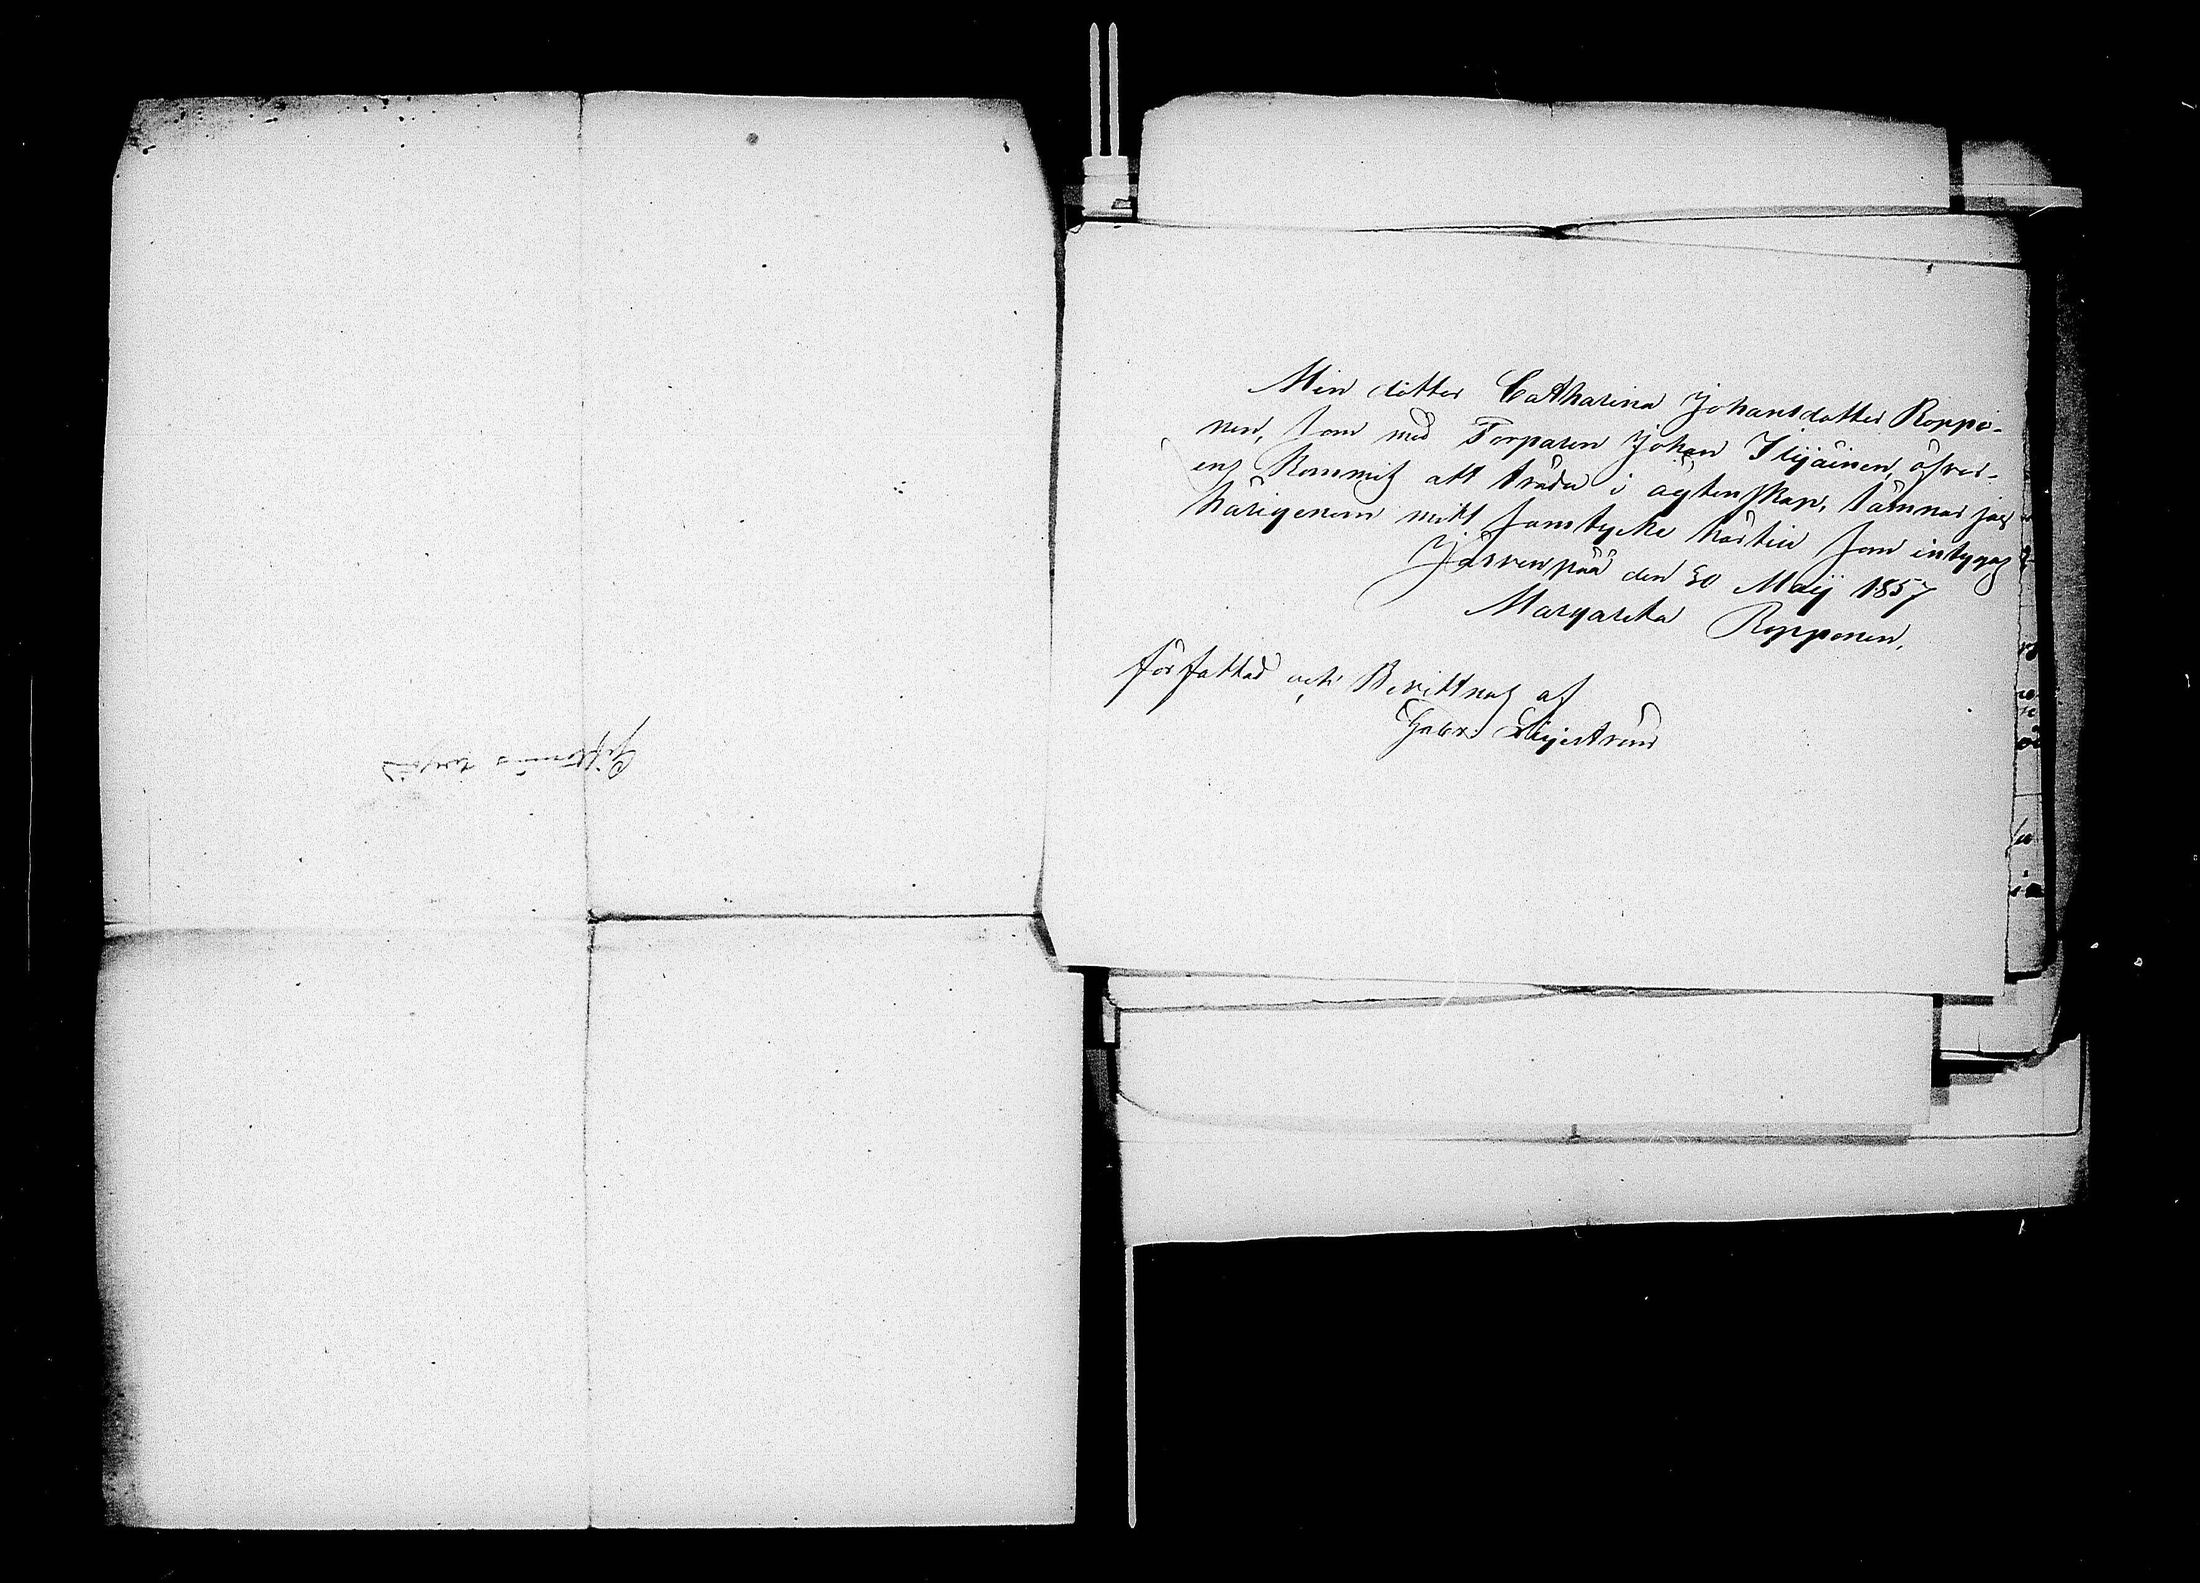 Min dotter Catharina Johansdotter Roppo-
nen, som med Torparen Johan Ilyäinen, öfver-
ens kommit att träda i ägtenskap, lämnar jag
härigenom mitt samtycke härtill som intygas
Järvenpää den 30 Maij 1857
Margareta Ropponen,
författad och Bevittnas af
Gabr. Liljestrand